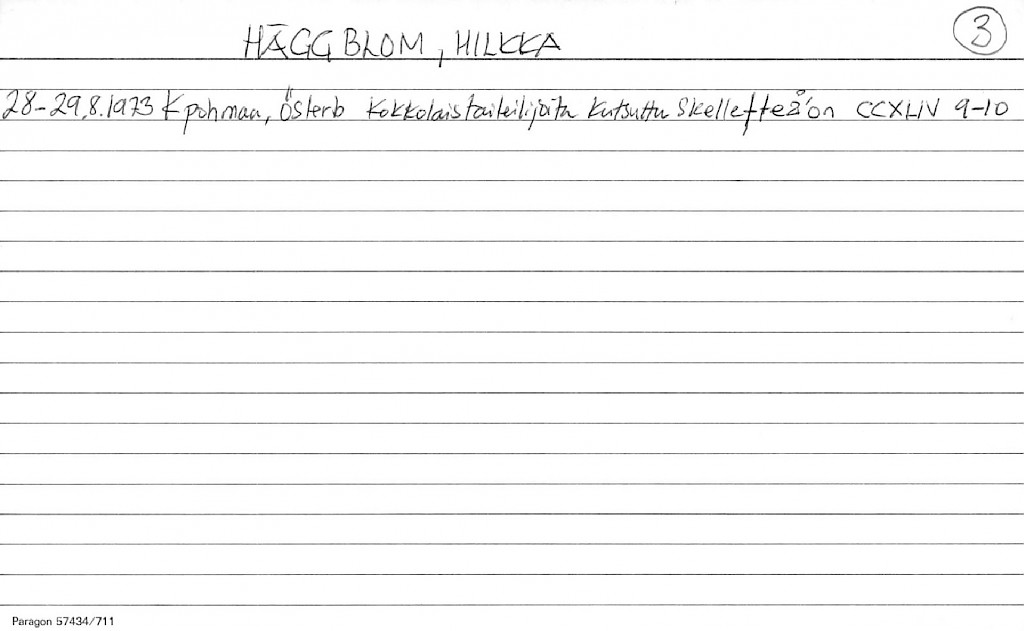 HÄGGBLOM, HILKKA
3
28-29.8.1973 Kpohmaa, Österb Kokkolaistaiteilijoita kutsuttu Skellefteå'on CCXLIV 9-10
Paragon 57434/711